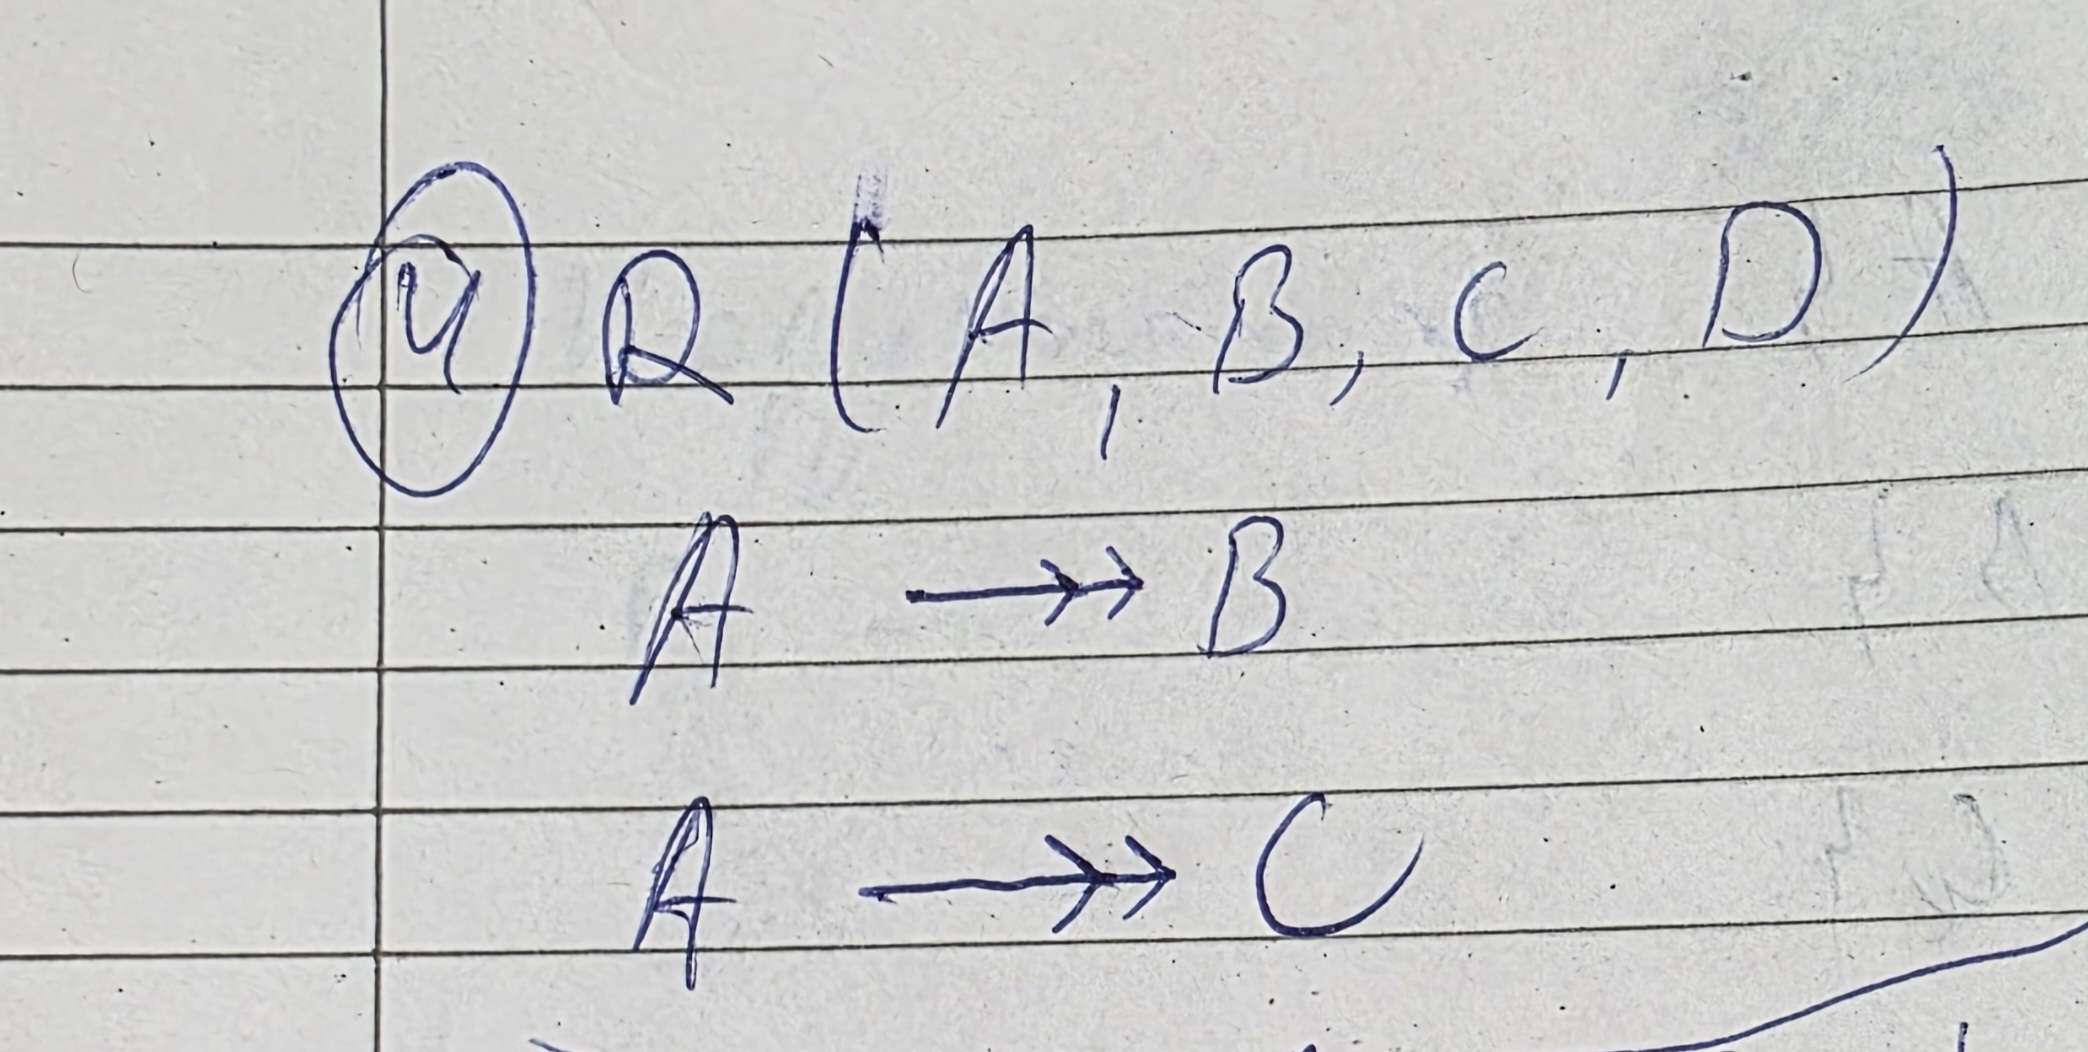 4 R (A, B, C, D)
A ↠ B
A ↠ C